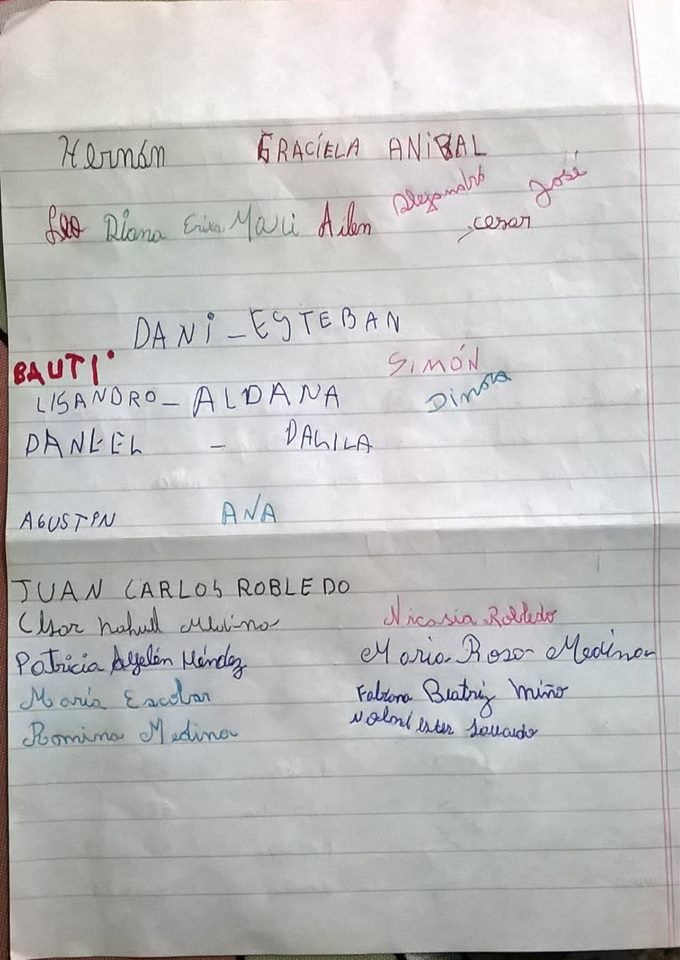 Hernán GRACIELA ANIBAL
Alejandro José
Leo Diana Erika Mari Ailen cesar
DANI - ESTEBAN
BAUTI SIMÓN
LISANDRO - ALDANA Dinora
DANIEL - DALILA
AGUSTIN ANA
JUAN CARLOS ROBLEDO
Cesar Nahuel Medina Nicasia Robledo
Patricia Ayelén Méndez Maria Rosa Medina
María Escobar Fabiana Beatriz Miño
Romina Medina Ester